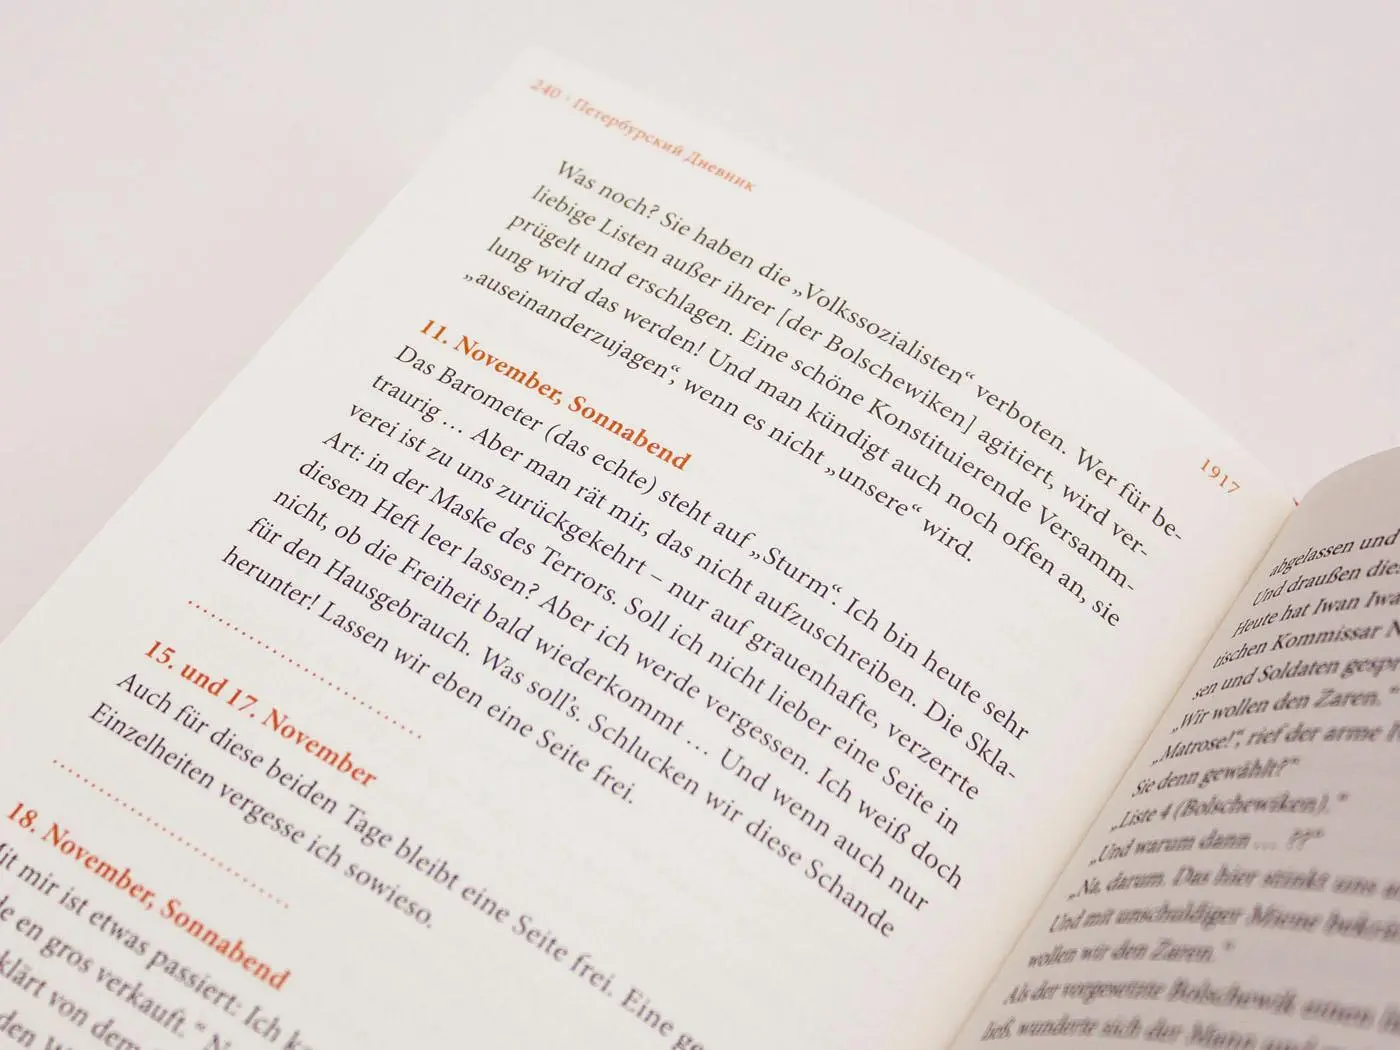 240 · Петербурский Дневник
1917
Was noch? Sie haben die „Volkssozialisten“ verboten. Wer für be-
liebige Listen außer ihrer [der Bolschewiken] agitiert, wird ver-
prügelt und erschlagen. Eine schöne Konstituierende Versamm-
lung wird das werden! Und man kündigt auch noch offen an, sie
„auseinanderzujagen“, wenn es nicht „unsere“ wird.
11. November, Sonnabend
Das Barometer (das echte) steht auf „Sturm“. Ich bin heute sehr
traurig … Aber man rät mir, das nicht aufzuschreiben. Die Skla-
verei ist zu uns zurückgekehrt – nur auf grauenhafte, verzerrte
Art: in der Maske des Terrors. Soll ich nicht lieber eine Seite in
diesem Heft leer lassen? Aber ich werde vergessen. Ich weiß doch
nicht, ob die Freiheit bald wiederkommt … Und wenn auch nur
für den Hausgebrauch. Was soll’s. Schlucken wir diese Schande
herunter! Lassen wir eben eine Seite frei.
15. und 17. November
Auch für diese beiden Tage bleibt eine Seite frei. Eine
Einzelheiten vergesse ich sowieso.
18. November, Sonnabend
mir ist etwas passiert: Ich
en gros verkauft.“
von dem
abgelassen und
Und draußen
Heute hat Iwan
tischen Kommissar
sen und Soldaten
„Wir wollen den Zaren.“
„Matrose!“, rief der arme
Sie denn gewählt?“
„Liste 4 (Bolschewiken).“
„Und warum dann … ??“
„Na, darum. Das hier stinkt uns
Und mit unschuldiger Miene
wollen wir den Zaren.“
Als der vorgesetzte Bolschewik einen
ließ, wunderte sich der Mann und